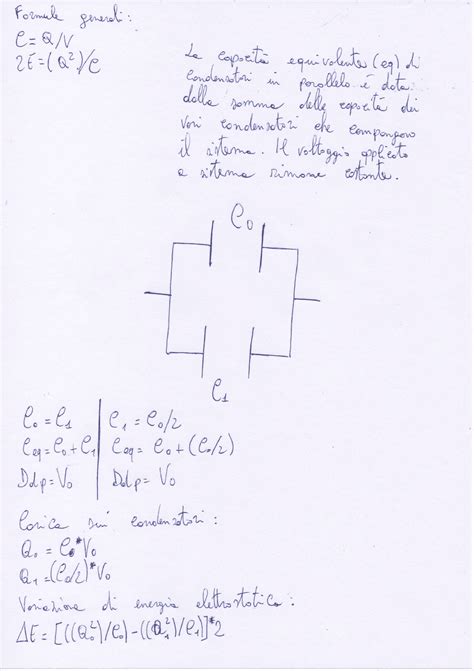 Formule generali:
C = Q/V
2E = (Q²)/C
La capacità equivalente (eq) di
condensatori in parallelo è data
dalla somma delle capacità dei
vari condensatori che compongono
il sistema. Il voltaggio applicato
a sistema rimane costante.
C₀
C₁
C₀ = C₁ | C₁ = C₀/2
Ceq = C₀ + C₁ | Ceq = C₀ + (C₀/2)
Ddp = V₀ | Ddp = V₀
Carica sui condensatori:
Q₀ = C₀*V₀
Q₁ = (C₀/2)*V₀
Variazione di energia elettrostatica:
ΔE = [((Q₀²)/C₀) - ((Q₁²)/C₁)]*2